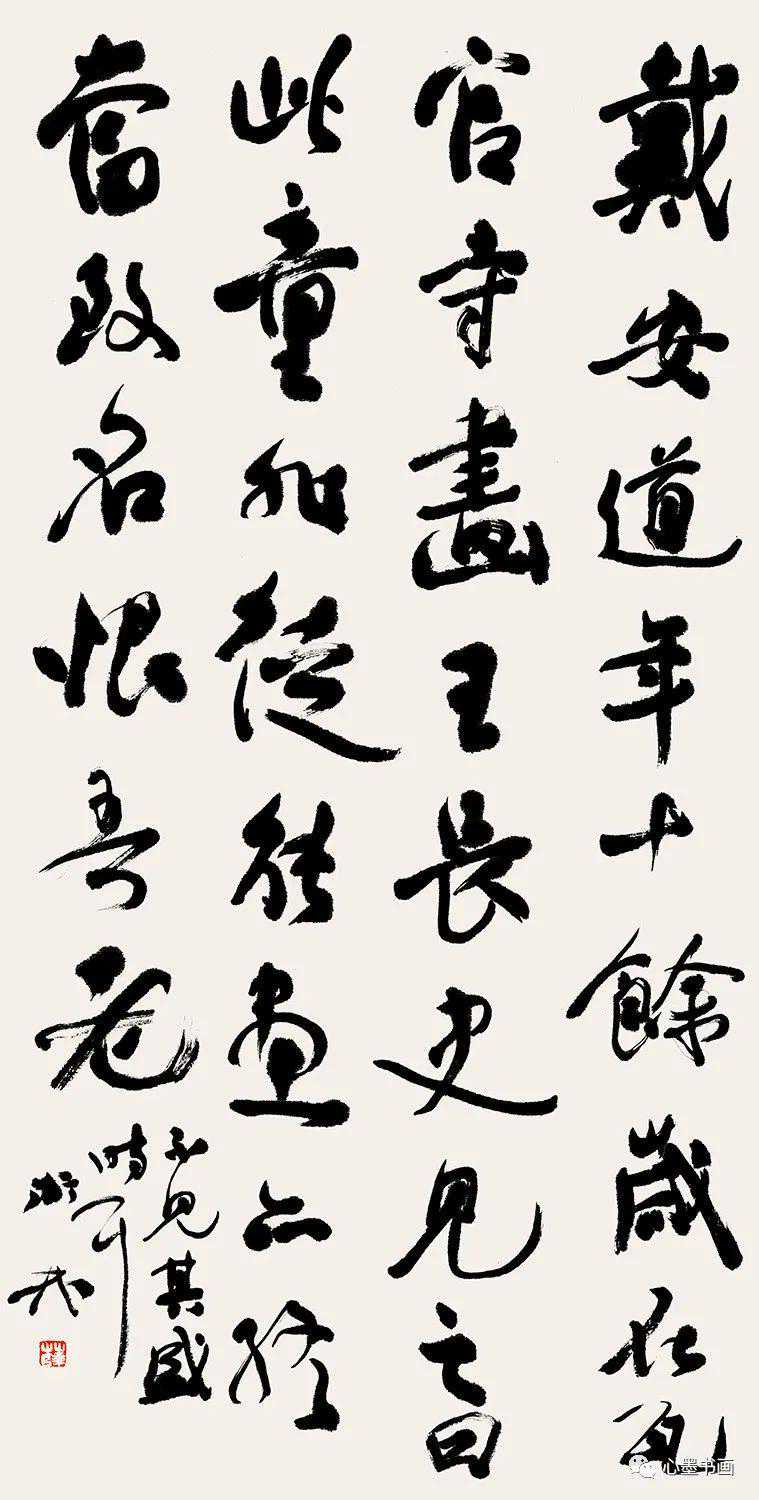 戴安道年十餘歲在瓦
官寺畫王長史見之曰
此童非徒能畫亦終
當致名恨吾老
不見其盛
時耳
心墨书画